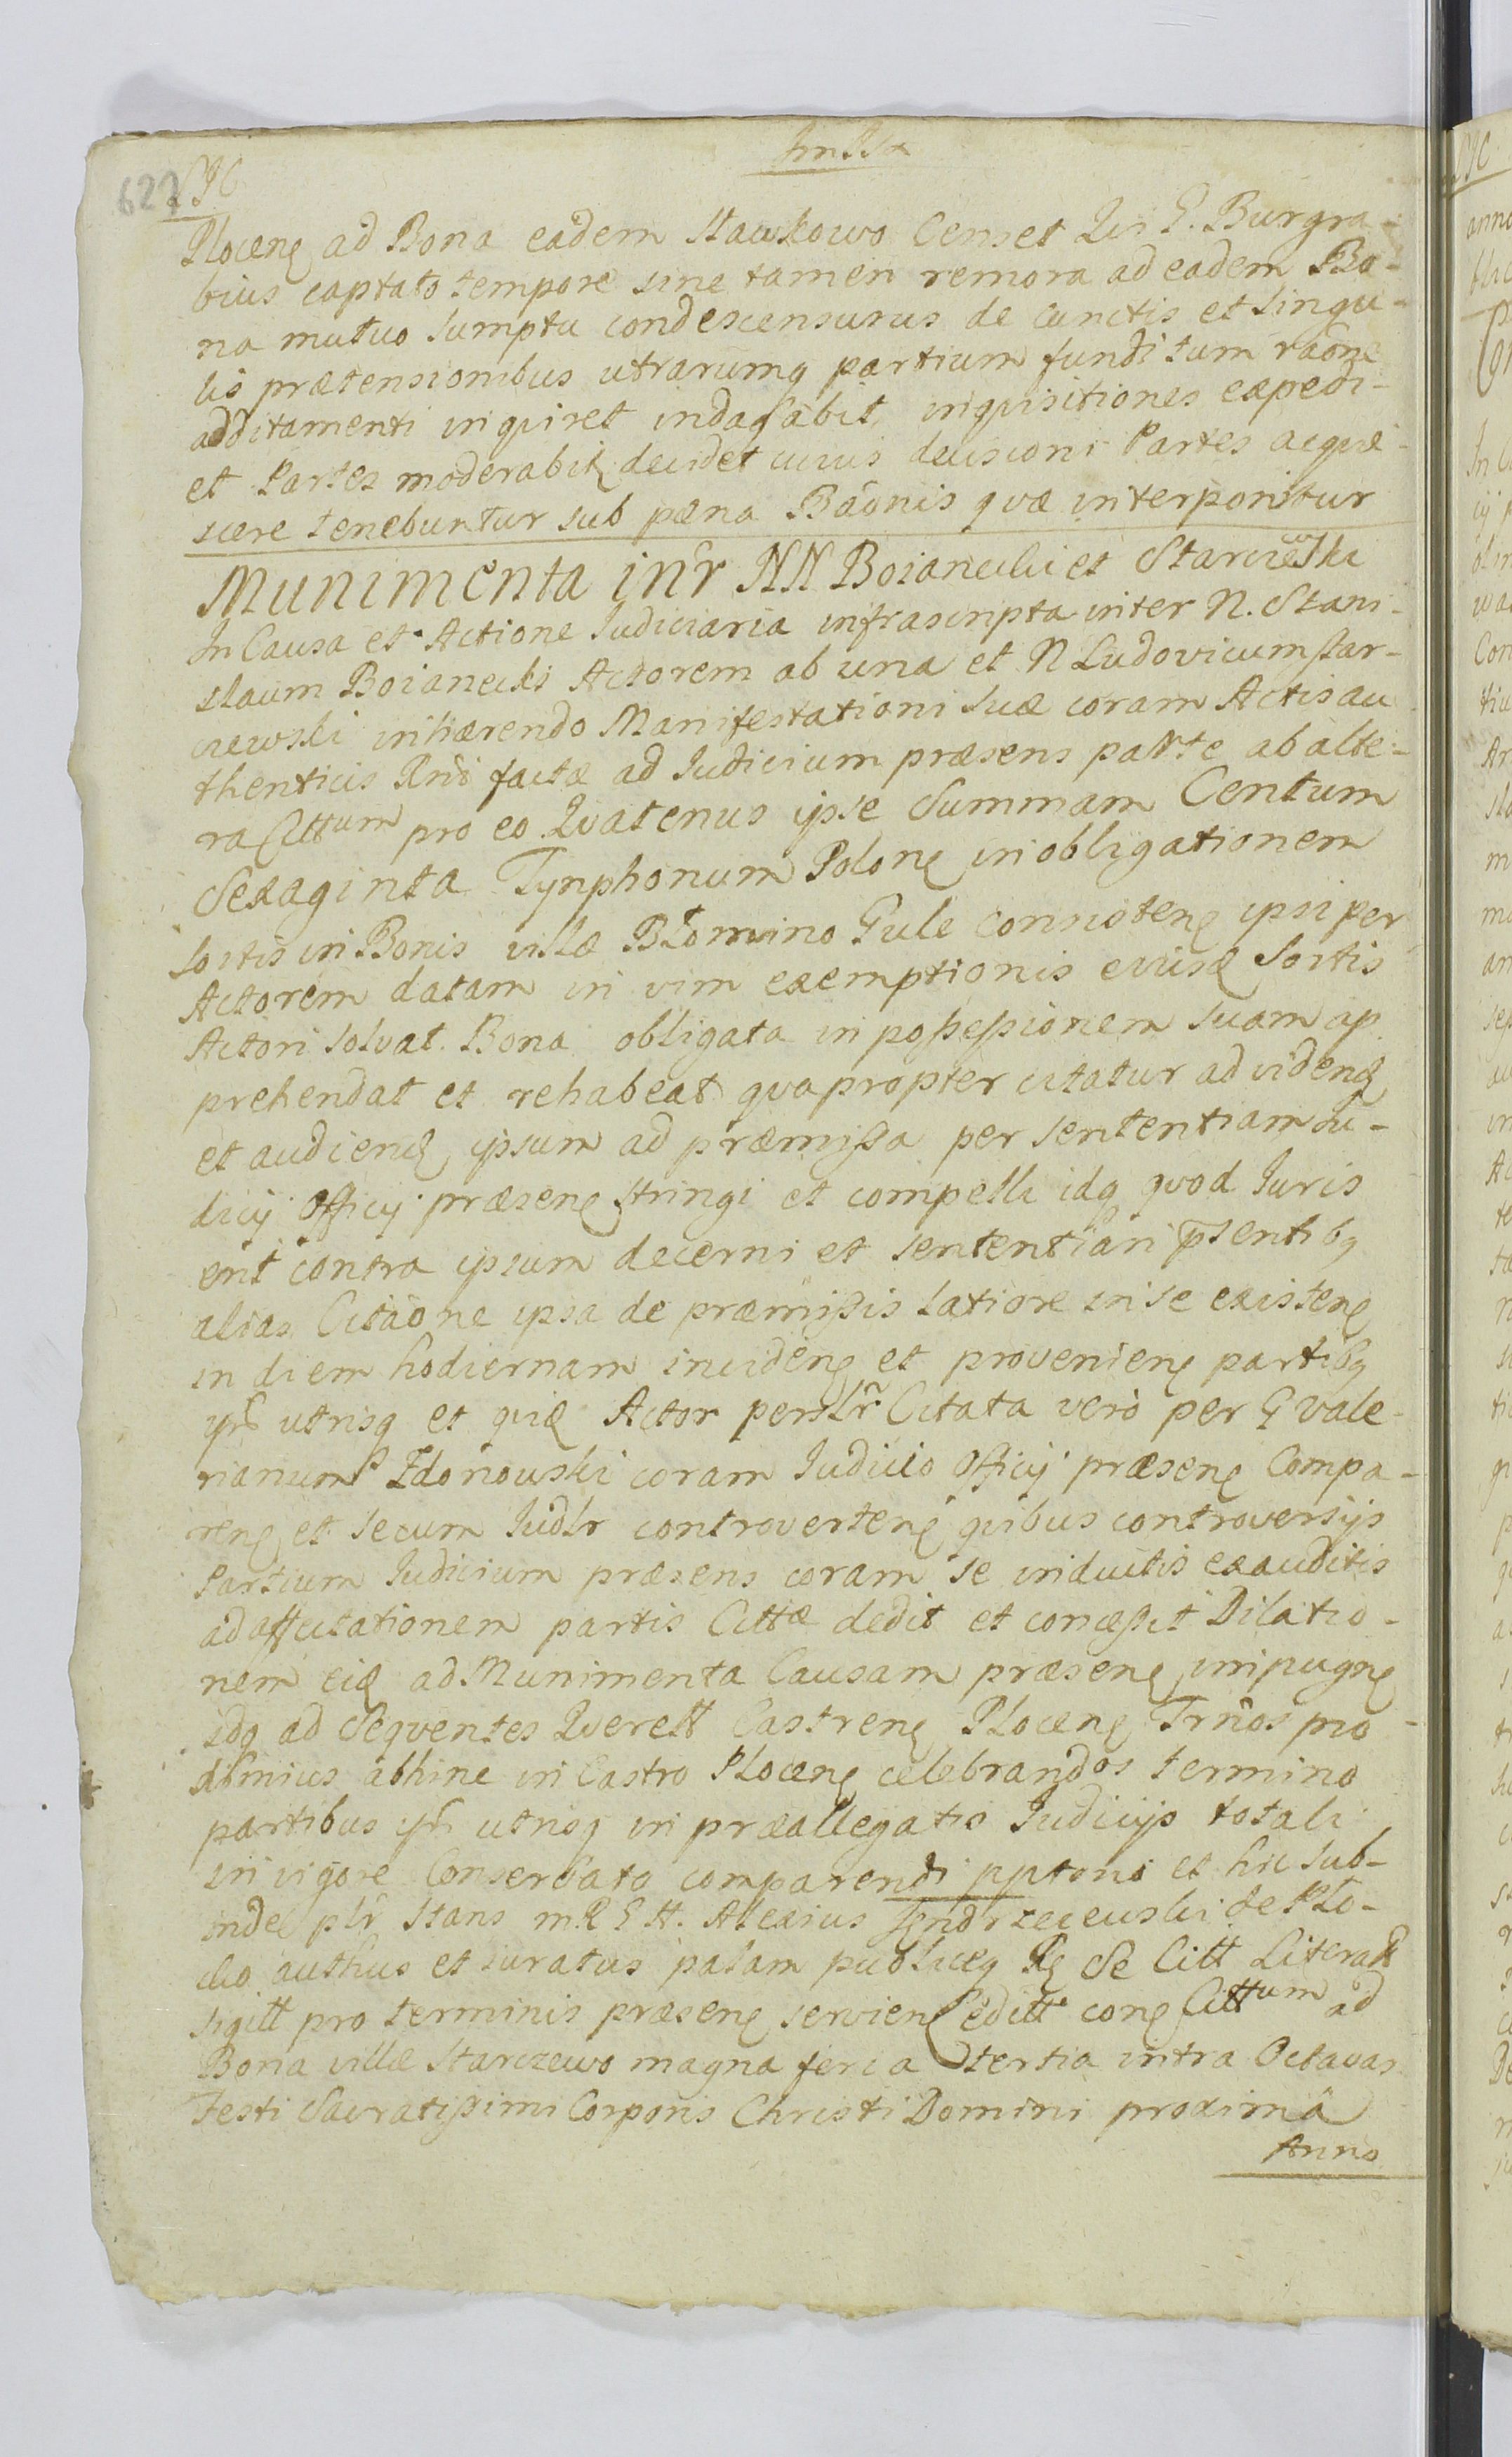 627
Plocenę ad Bona eadem Stawkowo Censet Qui G. Burgra-
bius captato tempore sine tamen remora ad eadem Bo-
na mutuo sumptu condescensurus de cunctis et singu-
lis prætensionibus utrarumq partium funditum raõne
additamenti inquiret indagabit, inquisitiones expedi-
et Partes moderabit decidet cuius decisioni Partes acquie-
scere tenebuntur sub pæna Bãonis quæ interponitur
Munimenta inr̃ NN Boianecki et Starczewski
In Causa et Actione Iudiciaria infrascripta inter N. Stani-
slaum Boianecki Actorem ab una et N Ludovicum Star-
czewski inhærendo Manifestationi suæ coram Actis au
thenticis factæ ad Iudicium præsens parte ab alte-
ra Citt^um pro eo Quatenus ipse Summam Centum
Sexaginta Tynphonum Polonę in obligationem
sortis in Bonis villæ Blomino Gule consistenę ipsi per
Actorem datam in vim exemptionis eiusd Sortis
Actori solvat. Bona obligata in possessionem suam ap
prehendat et rehabeat quapropter citatur ad videnḍ
et audienḍ ipsum ad præmissa per sententiam Iu-
dicij Officij præsenę stringi et compelli idq quod Iuris
erit contra ipsum decerni et sententiari p̃sentibq
alias Citãone ipsa de præmissis latiore in se existenę
in diem hodiernam incidenę et provenienę partibq
utrisq et quid Actor persłr̃ Citata verò per G Vale-
rianum Zdonowski coram Iudicio Officij præsenę Compa-
renę et secum Iudlr controvertenę quibus controversijs
Partium Iudicium præsens coram se inductis exauditis
ad affectationem partis Cittæ dedit et concessit Dilatio-
nem eid ad Munimenta Causam præsenę impugnę
idq ad Seqventes Querell Castrenę Plocenę Trmõs pro
ximius abhinc in Castro Plocenę celebrandos termino
partibus utrisq in præallegatis Iudicijs totali
in vigore Conservato comparendi pptorio et hic sub-
inde plr̃ stans m. R G H. Alexius Jendrzeiewski de Plo-
cko authus et iuratus palam publiceq Se Citt Literas
sigill pro terminis præsenę servienę editt conę Citt^um ad
Bona villæ Starczewo magna feria tertia intra Octavas
Festi Sacratissimi Corporis Christi Domini proximâ
Anno